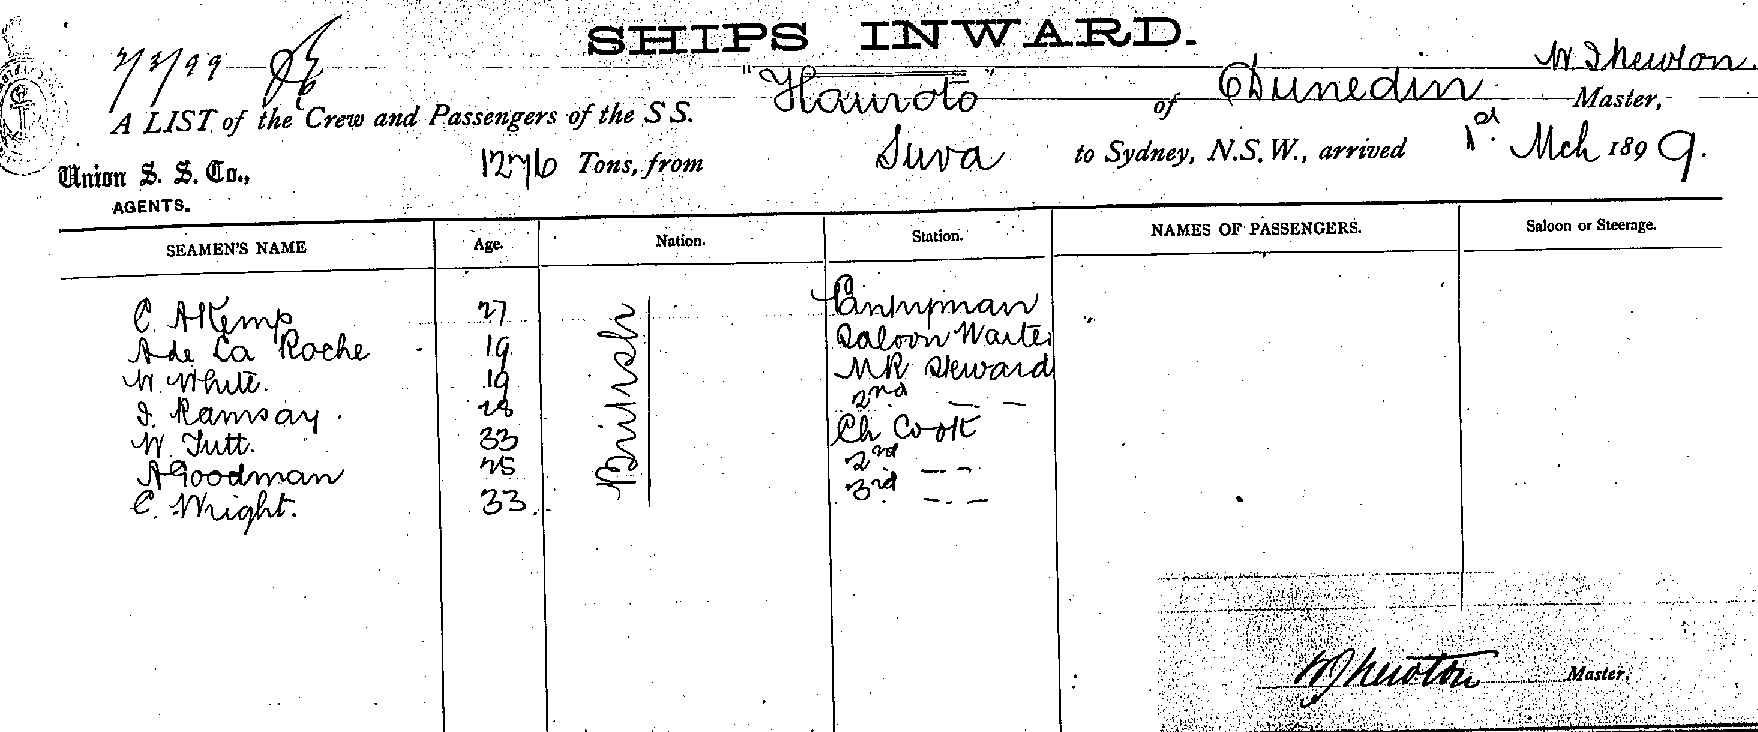 SHIPS INWARD.
2/3/99
W. J. Newton
A LIST of the Crew and Passengers of the S S. "Hauroto" of Dunedin Master,
Union S. S. Co., 1276 Tons, from Suva to Sydney, N.S.W., arrived 1st. Mch 1899.
AGENTS.
SEAMEN'S NAME Age. Nation. Station. NAMES OF PASSENGERS. Saloon or Steerage.
C. A Kemp 27 British Pantryman
A de La Roche 19 Saloon Waiter
W. White. 19 M R Steward
J. Ramsay. 28 2nd — —
W. Tutt. 33 Ch Cook
A Goodman 25 2nd — -
C. Wright. 33. 3rd — —
W J Newton Master.